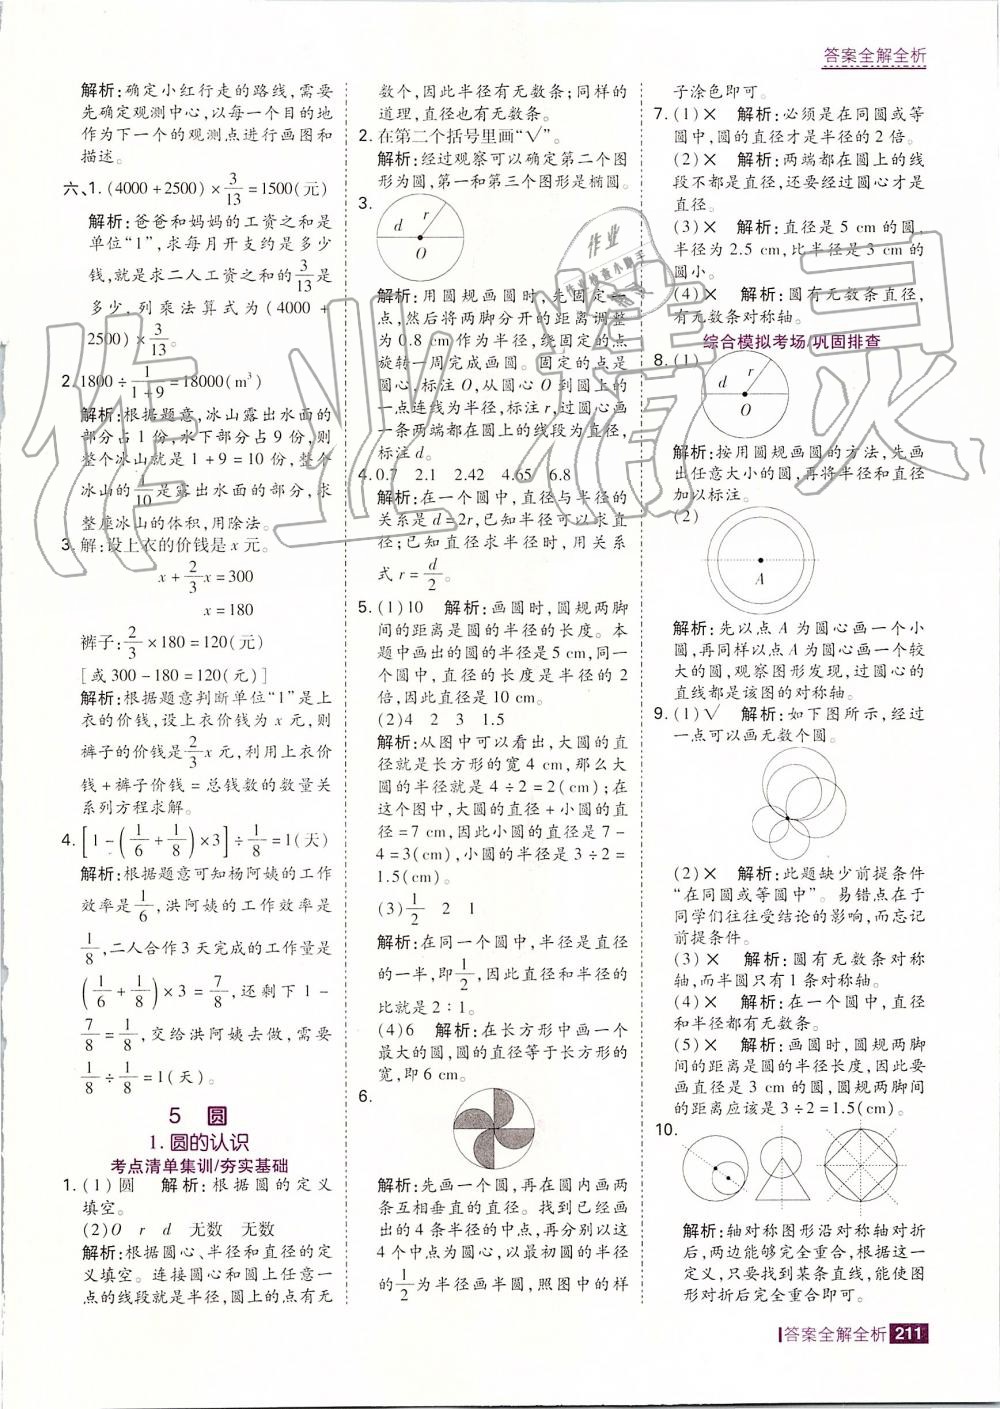 答案全解全析
解析:确定小红行走的路线,需要
先确定观测中心,以每一个目的地
作为下一个的观测点进行画图和
描述。
六、1. (4000+2500)×3/13=1500(元)
解析:爸爸和妈妈的工资之和是
单位“1”,求每月开支约是多少
钱,就是求二人工资之和的3/13是
多少,列乘法算式为(4000+
2500)×3/13。
2. 1800÷1/(1+9)=18000(m³)
解析:根据题意,冰山露出水面的
部分占1份,水下部分占9份,则
整个冰山就是1+9=10份,整个
冰山的1/10是露出水面的部分,求
整座冰山的体积,用除法。
3. 解:设上衣的价钱是x元。
x+2/3x=300
x=180
裤子:2/3×180=120(元)
[或300-180=120(元)]
解析:根据题意判断单位“1”是上
衣的价钱,设上衣价钱为x元,则
裤子的价钱为2/3x元,利用上衣价
钱+裤子价钱=总钱数的数量关
系列方程求解。
4. [1-(1/6+1/8)×3]÷1/8=1(天)
解析:根据题意可知杨阿姨的工作
效率是1/6,洪阿姨的工作效率是
1/8,二人合作3天完成的工作量是
(1/6+1/8)×3=7/8,还剩下1-
7/8=1/8,交给洪阿姨去做,需要
1/8÷1/8=1(天)。
5 圆
1. 圆的认识
考点清单集训/夯实基础
1. (1)圆 解析:根据圆的定义
填空。
(2)O r d 无数 无数
解析:根据圆心、半径和直径的定
义填空。连接圆心和圆上任意一
点的线段就是半径,圆上的点有无
数个,因此半径有无数条;同样的
道理,直径也有无数条。
2. 在第二个括号里画“√”。
解析:经过观察可以确定第二个图
形为圆,第一和第三个图形是椭圆。
3.
d r
O
解析:用圆规画圆时,先固定一
点,然后将两脚分开的距离调整
为0.8 cm作为半径,绕固定的点
旋转一周完成画圆。固定的点是
圆心,标注O,从圆心O到圆上的
一点连线为半径,标注r,过圆心画
一条两端都在圆上的线段为直径,
标注d。
4. 0.7 2.1 2.42 4.65 6.8
解析:在一个圆中,直径与半径的
关系是d=2r,已知半径可以求直
径;已知直径求半径时,用关系
式r=d/2。
5. (1)10 解析:画圆时,圆规两脚
间的距离是圆的半径的长度。本
题中画出的圆的半径是5 cm,同一
个圆中,直径的长度是半径的2
倍,因此直径是10 cm。
(2)4 2 3 1.5
解析:从图中可以看出,大圆的直
径就是长方形的宽4 cm,那么大
圆的半径就是4÷2=2(cm);在
这个图中,大圆的直径+小圆的直
径=7 cm,因此小圆的直径是7-
4=3(cm),小圆的半径是3÷2=
1.5(cm)。
(3)1/2 2 1
解析:在同一个圆中,半径是直径
的一半,即1/2,因此直径和半径的
比就是2∶1。
(4)6 解析:在长方形中画一个
最大的圆,圆的直径等于长方形的
宽,即6 cm。
6.
解析:先画一个圆,再在圆内画两
条互相垂直的直径。找到已经画
出的4条半径的中点,再分别以这
4个中点为圆心,以最初圆的半径
的1/2为半径画半圆,照图中的样
子涂色即可。
7. (1)× 解析:必须是在同圆或等
圆中,圆的直径才是半径的2倍。
(2)× 解析:两端都在圆上的线
段不都是直径,还要经过圆心才是
直径。
(3)× 解析:直径是5 cm的圆,
半径为2.5 cm,比半径是3 cm的
圆小。
(4)× 解析:圆有无数条直径,
有无数条对称轴。
综合模拟考场/巩固排查
8. (1)
d r
O
解析:按用圆规画圆的方法,先画
出任意大小的圆,再将半径和直径
加以标注。
(2)
A
解析:先以点A为圆心画一个小
圆,再同样以点A为圆心画一个较
大的圆,观察图形发现,过圆心的
直线都是该图的对称轴。
9. (1)√ 解析:如下图所示,经过
一点可以画无数个圆。
(2)× 解析:此题缺少前提条件
“在同圆或等圆中”。易错点在于
同学们往往受结论的影响,而忘记
前提条件。
(3)× 解析:圆有无数条对称
轴,而半圆只有1条对称轴。
(4)× 解析:在一个圆中,直径
和半径都有无数条。
(5)× 解析:画圆时,圆规两脚
间的距离是圆的半径长度,因此要
画直径是3 cm的圆,圆规两脚间
的距离应该是3÷2=1.5(cm)。
10.
解析:轴对称图形沿对称轴对折
后,两边能够完全重合,根据这一
定义,只要找到某条直线,能使图
形对折后完全重合即可。
答案全解全析 211
作业精灵